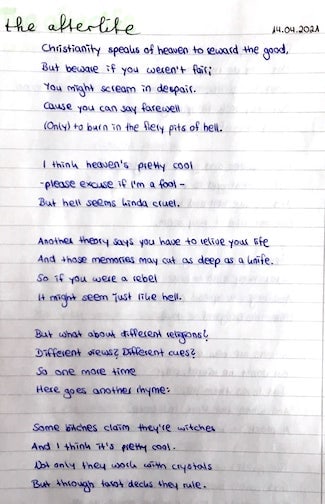 the afterlife 14.04.2021
Christianity speaks of heaven to reward the good,
But beware if you weren't fair;
You might scream in despair.
Cause you can say farewell
(Only) to burn in the fiery pits of hell.
I think heaven's pretty cool
-please excuse if I'm a fool-
But hell seems kinda cruel.
Another theory says you have to relive your life
And those memories may cut as deep as a knife.
So if you were a rebel
It might seem just like hell.
But what about different religions?
Different views? Different cues?
So one more time
Here goes another rhyme:
Some bitches claim they're witches
And I think it's pretty cool.
Not only they work with crystals
But through tarot decks they rule.